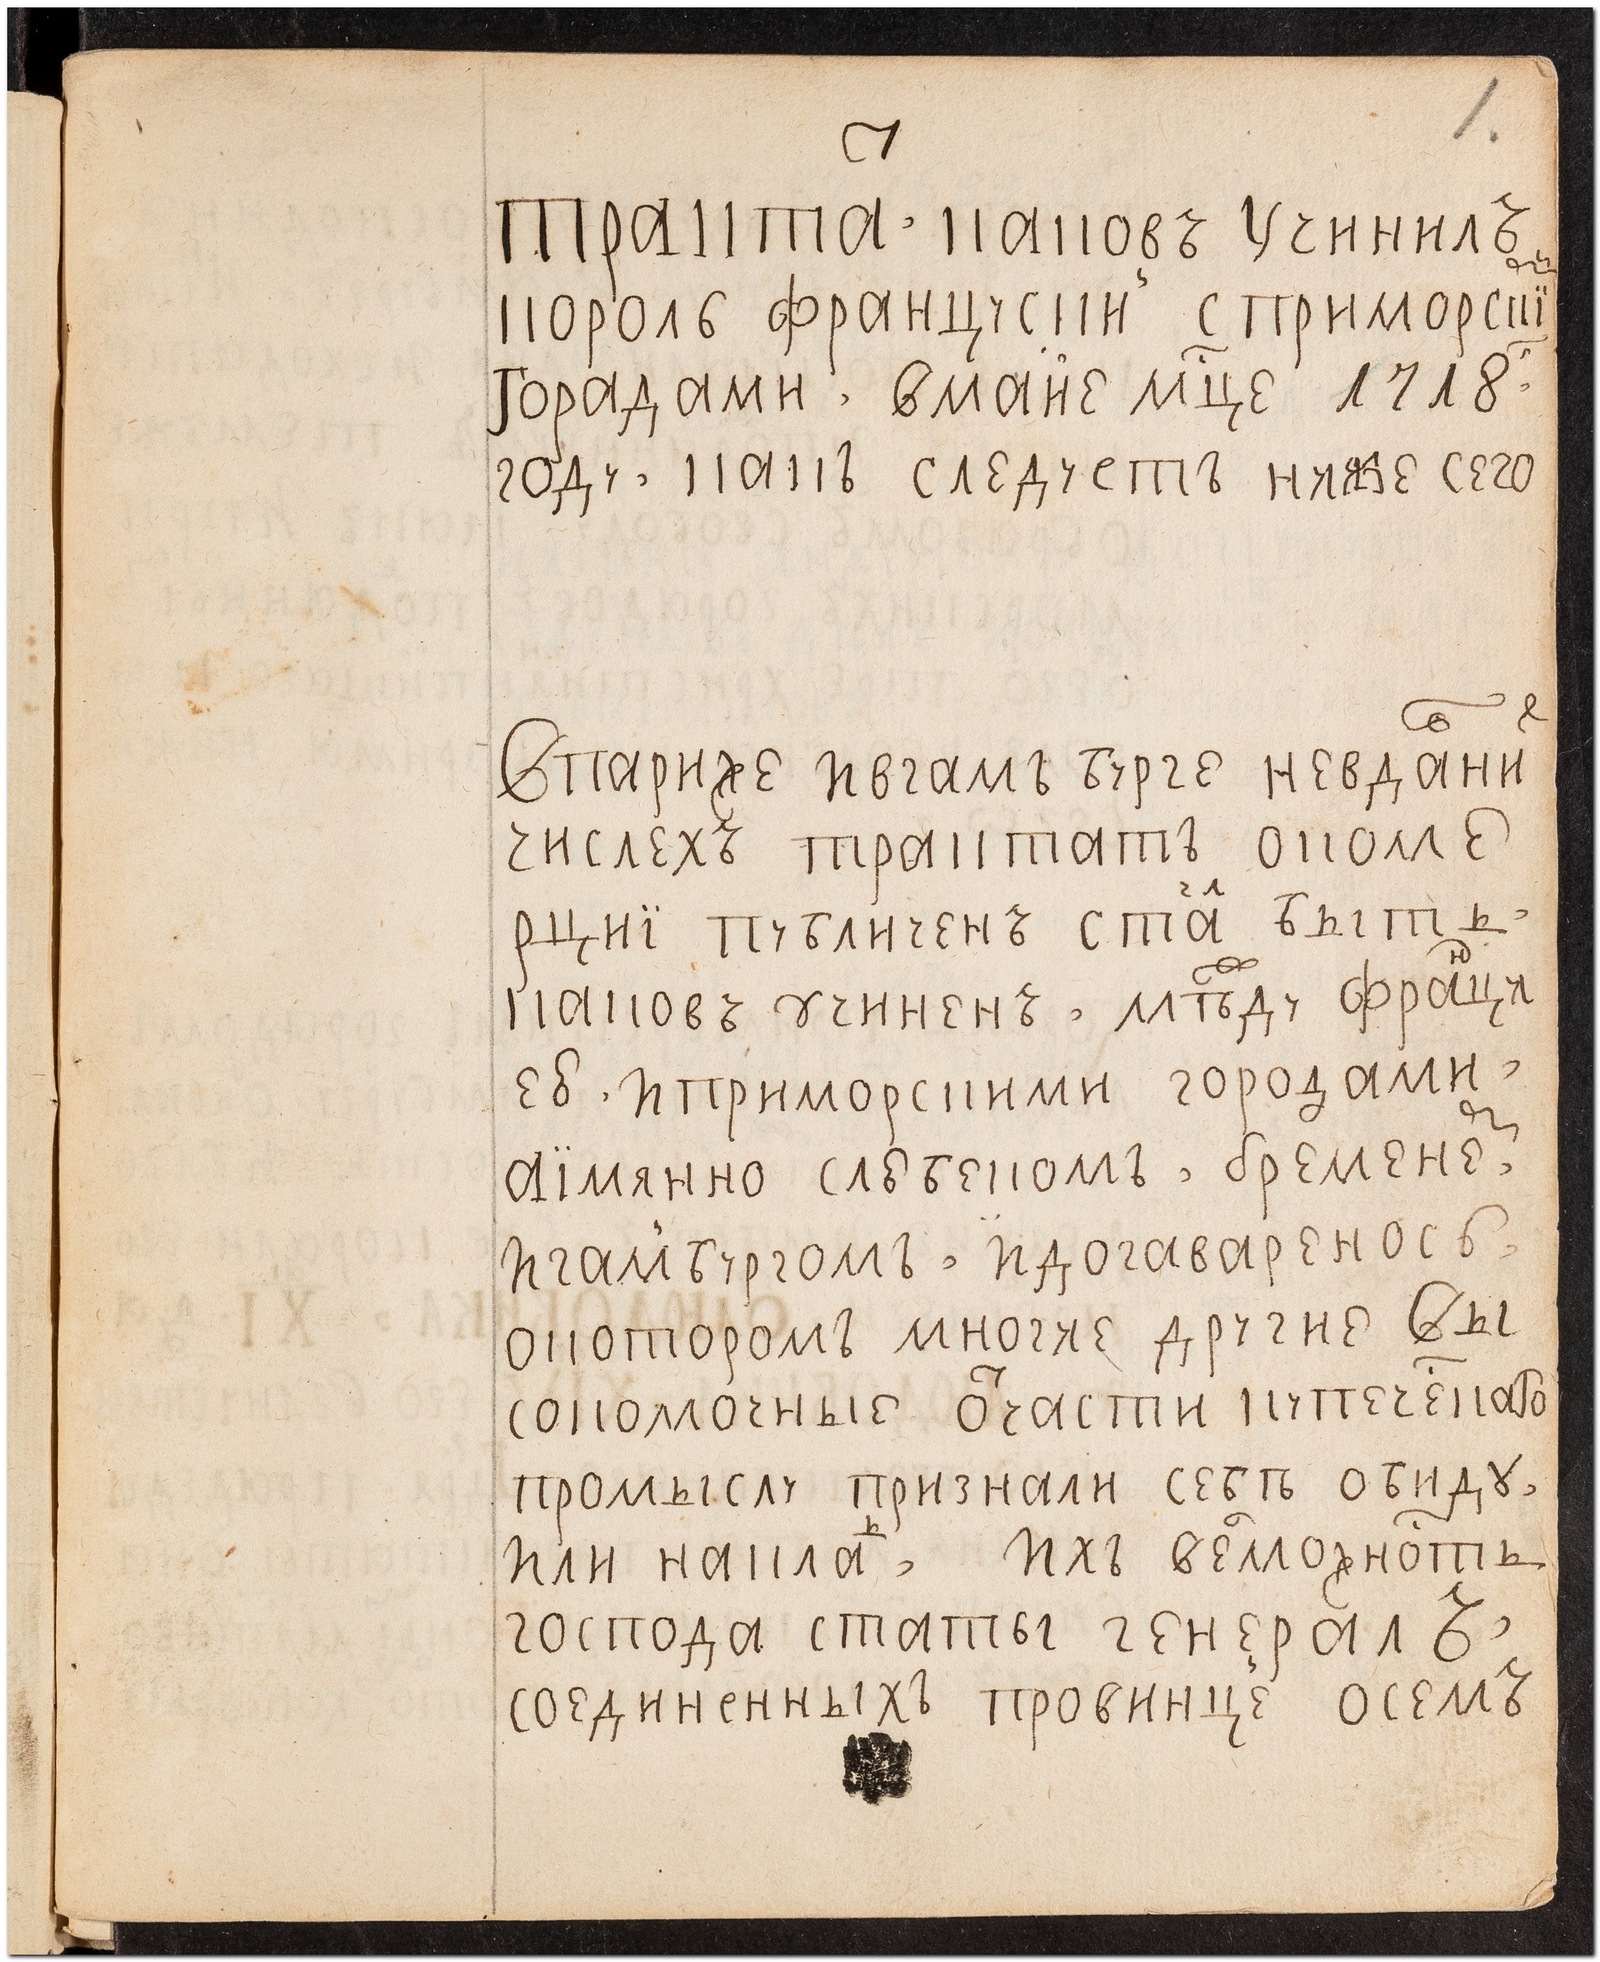 1.
трактатъ каковъ учинилъ
король францускии с приморскїми
городами, вмаие мⷭ҇це 1718г
году, какъ следуетъ ниже сего
Впариже игамъбурге невдавни
числехъ трактатъ окоме
рцнї публиченъ сталъ быть,
каковъ учиненъ, между францу
зы, иприморскими городами,
аїмянно слюбекомъ, бременемъ,
игамъбургомъ, идогаваренось,
окотором многие другие вы
сокомочные участи купечекаго
промыслу признали себѣ обиду,
или накладъ, Ихъ велможности
господа статы генералъ,
соединенныхъ провинце осемъ